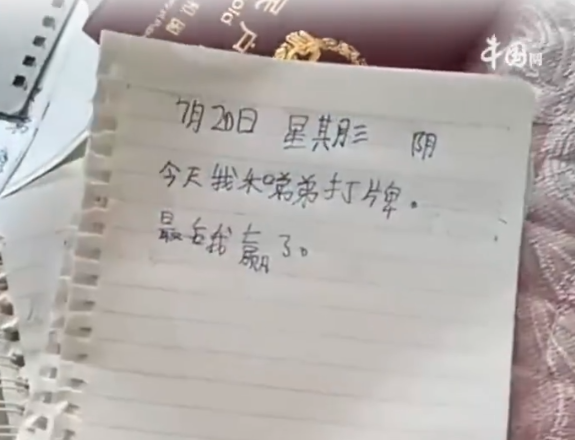 和国
户
old
中国网
7月20日 星期三 阴
今天我和弟弟打牌。
最后我赢了。